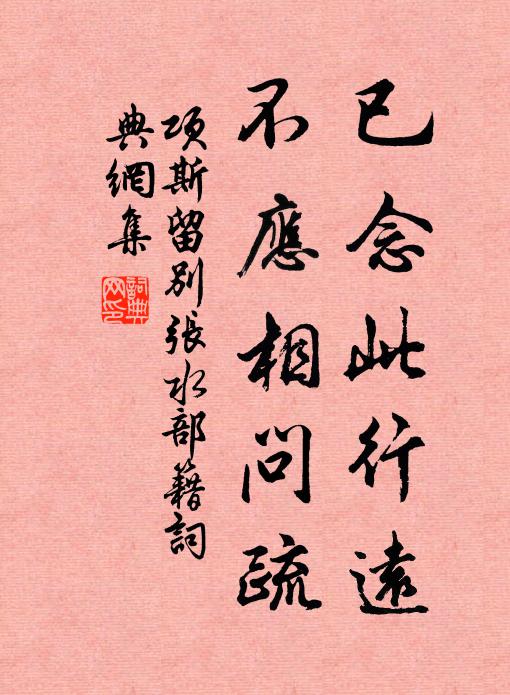 已念此行遠
不應相問疏
項斯留別張水部籍詞
典網集
詞典
网印